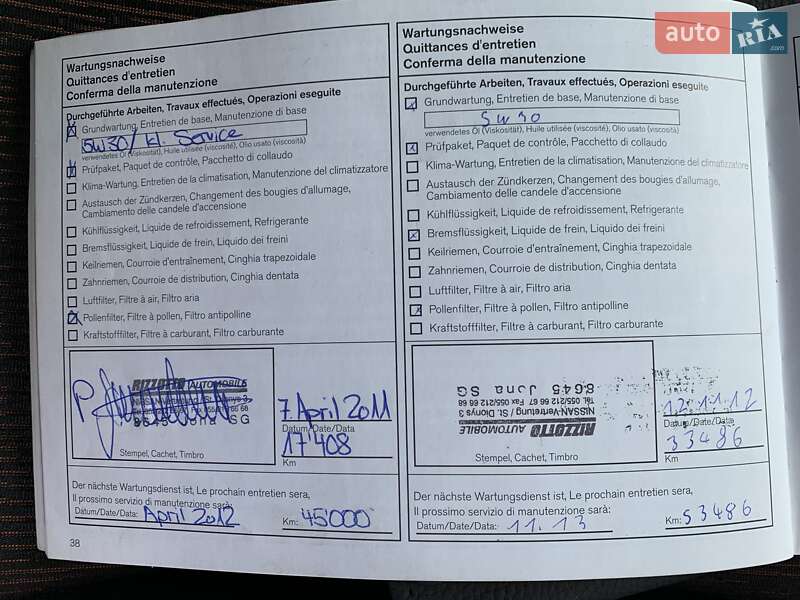 Wartungsnachweise
Quittances d'entretien
Conferma della manutenzione
Durchgeführte Arbeiten, Travaux effectués, Operazioni eseguite
Grundwartung, Entretien de base, Manutenzione di base
5W30/ kl. Service
verwendetes Öl (Viskosität), Huile utilisée (viscosité), Olio usato (viscosità)
Prüfpaket, Paquet de contrôle, Pacchetto di collaudo
Klima-Wartung, Entretien de la climatisation, Manutenzione del climatizzatore
Austausch der Zündkerzen, Changement des bougies d'allumage,
Cambiamento delle candele d'accensione
Kühlflüssigkeit, Liquide de refroidissement, Refrigerante
Bremsflüssigkeit, Liquide de frein, Liquido dei freini
Keilriemen, Courroie d'entraînement, Cinghia trapezoidale
Zahnriemen, Courroie de distribution, Cinghia dentata
Luftfilter, Filtre à air, Filtro aria
Pollenfilter, Filtre à pollen, Filtro antipolline
Kraftstofffilter, Filtre à carburant, Filtro carburante
RIZZOTTO AUTOMOBILE
8645 Jona SG
Stempel, Cachet, Timbro
7. April 2011
Datum/Date/Data
17'408
Km
Der nächste Wartungsdienst ist, Le prochain entretien sera,
Il prossimo servizio di manutenzione sarà:
Datum/Date/Data: April 2012 Km: 45'000
38
Wartungsnachweise
Quittances d'entretien
Conferma della manutenzione
Durchgeführte Arbeiten, Travaux effectués, Operazioni eseguite
Grundwartung, Entretien de base, Manutenzione di base
5W30
verwendetes Öl (Viskosität), Huile utilisée (viscosité), Olio usato (viscosità)
Prüfpaket, Paquet de contrôle, Pacchetto di collaudo
Klima-Wartung, Entretien de la climatisation, Manutenzione del climatizzatore
Austausch der Zündkerzen, Changement des bougies d'allumage,
Cambiamento delle candele d'accensione
Kühlflüssigkeit, Liquide de refroidissement, Refrigerante
Bremsflüssigkeit, Liquide de frein, Liquido dei freini
Keilriemen, Courroie d'entraînement, Cinghia trapezoidale
Zahnriemen, Courroie de distribution, Cinghia dentata
Luftfilter, Filtre à air, Filtro aria
Pollenfilter, Filtre à pollen, Filtro antipolline
Kraftstofffilter, Filtre à carburant, Filtro carburante
RIZZOTTO AUTOMOBILE
NISSAN-Vertretung / St. Dionys 3
Tel. 055/212 66 67 Fax 055/212 66 68
8645 Jona SG
Stempel, Cachet, Timbro
12.11.12
Datum/Date/Data
33486
Km
Der nächste Wartungsdienst ist, Le prochain entretien sera,
Il prossimo servizio di manutenzione sarà:
Datum/Date/Data: 11.13 Km: 53486
auto RIA .com